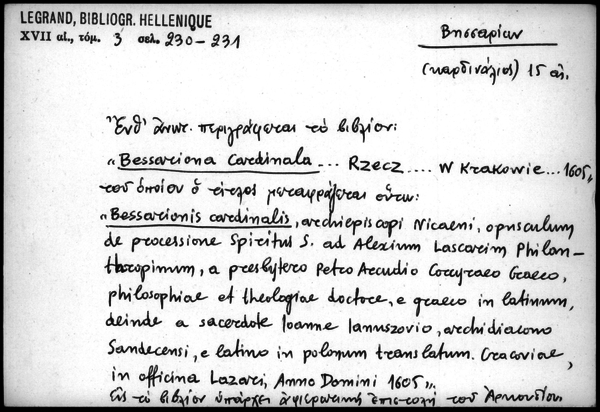 LEGRAND, BIBLIOGR. HELLENIQUE
XVII αἰ., τόμ. 3 σελ. 230-231
Βησσαρίων
(καρδινάλιος) 15 αἰ.
Ἔνθ' ἀνωτ. περιγράφεται τὸ βιβλίον:
"Bessariona Cardinala ... Rzecz .... W Krakowie ... 1605"
τοῦ ὁποίου ὁ τίτλος μεταφράζεται οὕτω:
"Bessarionis cardinalis, archiepiscopi Nicaeni, opusculum
de processione Spiritus S. ad Alexium Lascarim Philan-
thropinum, a presbytero Petro Arcudio Corcyraeo Graeco,
philosophiae et theologiae doctore, e graeco in latinum,
deinde a sacerdote Ioanne Ianuszovio, archidiacono
Sandecensi, e latino in polonum translatum. Cracoviae,
in officina Lazari, Anno Domini 1605".
Εἰς τὸ βιβλίον ὑπάρχει ἀφιερωτικὴ ἐπιστολὴ τοῦ Ἀρκουδίου